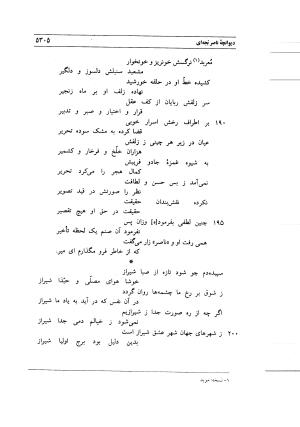 دیوانچهٔ ناصر بُجه‌ای
۵۳۰۵
مُعربد(۱) نرگسش خونریز و خونخوار
مشعبد سنبلش دلسوز و دلگیر
کشیده خطّ او در حلقه خورشید
نهاده زلف او بر ماه زنجیر
سر زلفش ربایان از کف عقل
قرار و اختیار و صبر و تدبیر
۱۹۰ بر اطراف رخش اسرار خوبی
قضا کرده به مشک سوده تحریر
عیان در زیر هر چینی ز زلفش
هزاران خلّخ و فرخار و کشمیر
به شیوه غمزهٔ جادو فریبش
کمال هجر را می‌کرد تحریر
نمی‌آمد ز بس حسن و لطافت
نظر را صورتش در قید تصویر
نکرده نقش‌بندان حقیقت
حقیقت در حق او هیچ تقصیر
۱۹۵ چنین لطفی بفرمود[ه] وزان پس
نفرمود آن صنم یک لحظه تأخیر
همی رفت او و «ناصر» زار می‌گفت
که آه از خاطر فرو مگذارم ای میر.
*
سپیده‌دم چو شود تازه از صبا شیراز
خوشا هوای مصلّی و حبّذا شیراز
ز شوق بر رخ ما چشمه‌ها روان گردد
در آن نفس که در آید به یاد ما شیراز
اگر چه صورت ما گشت جدا ز شیرازیم
نمی‌شود ز خیالم دمی جدا شیراز
۲۰۰ ز شهرهای جهان شهر عشق شیراز است
بدین دلیل بود برج اولیا شیراز
۱- نسخه: موبد